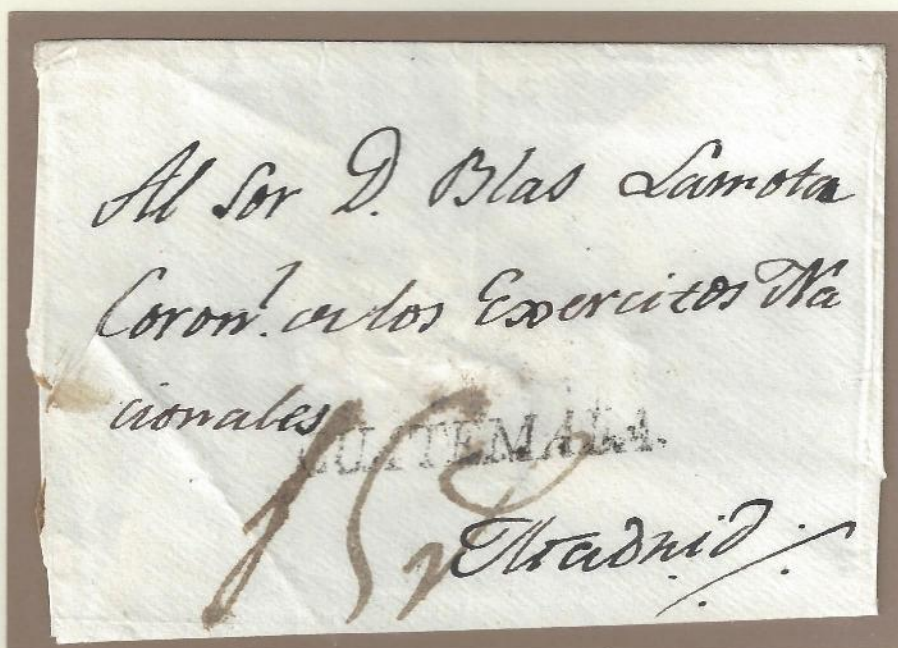 Al Sor D. Blas Lamota
Coronl. de los Exercitos Na
cionales
GUATEMALA.
Madrid